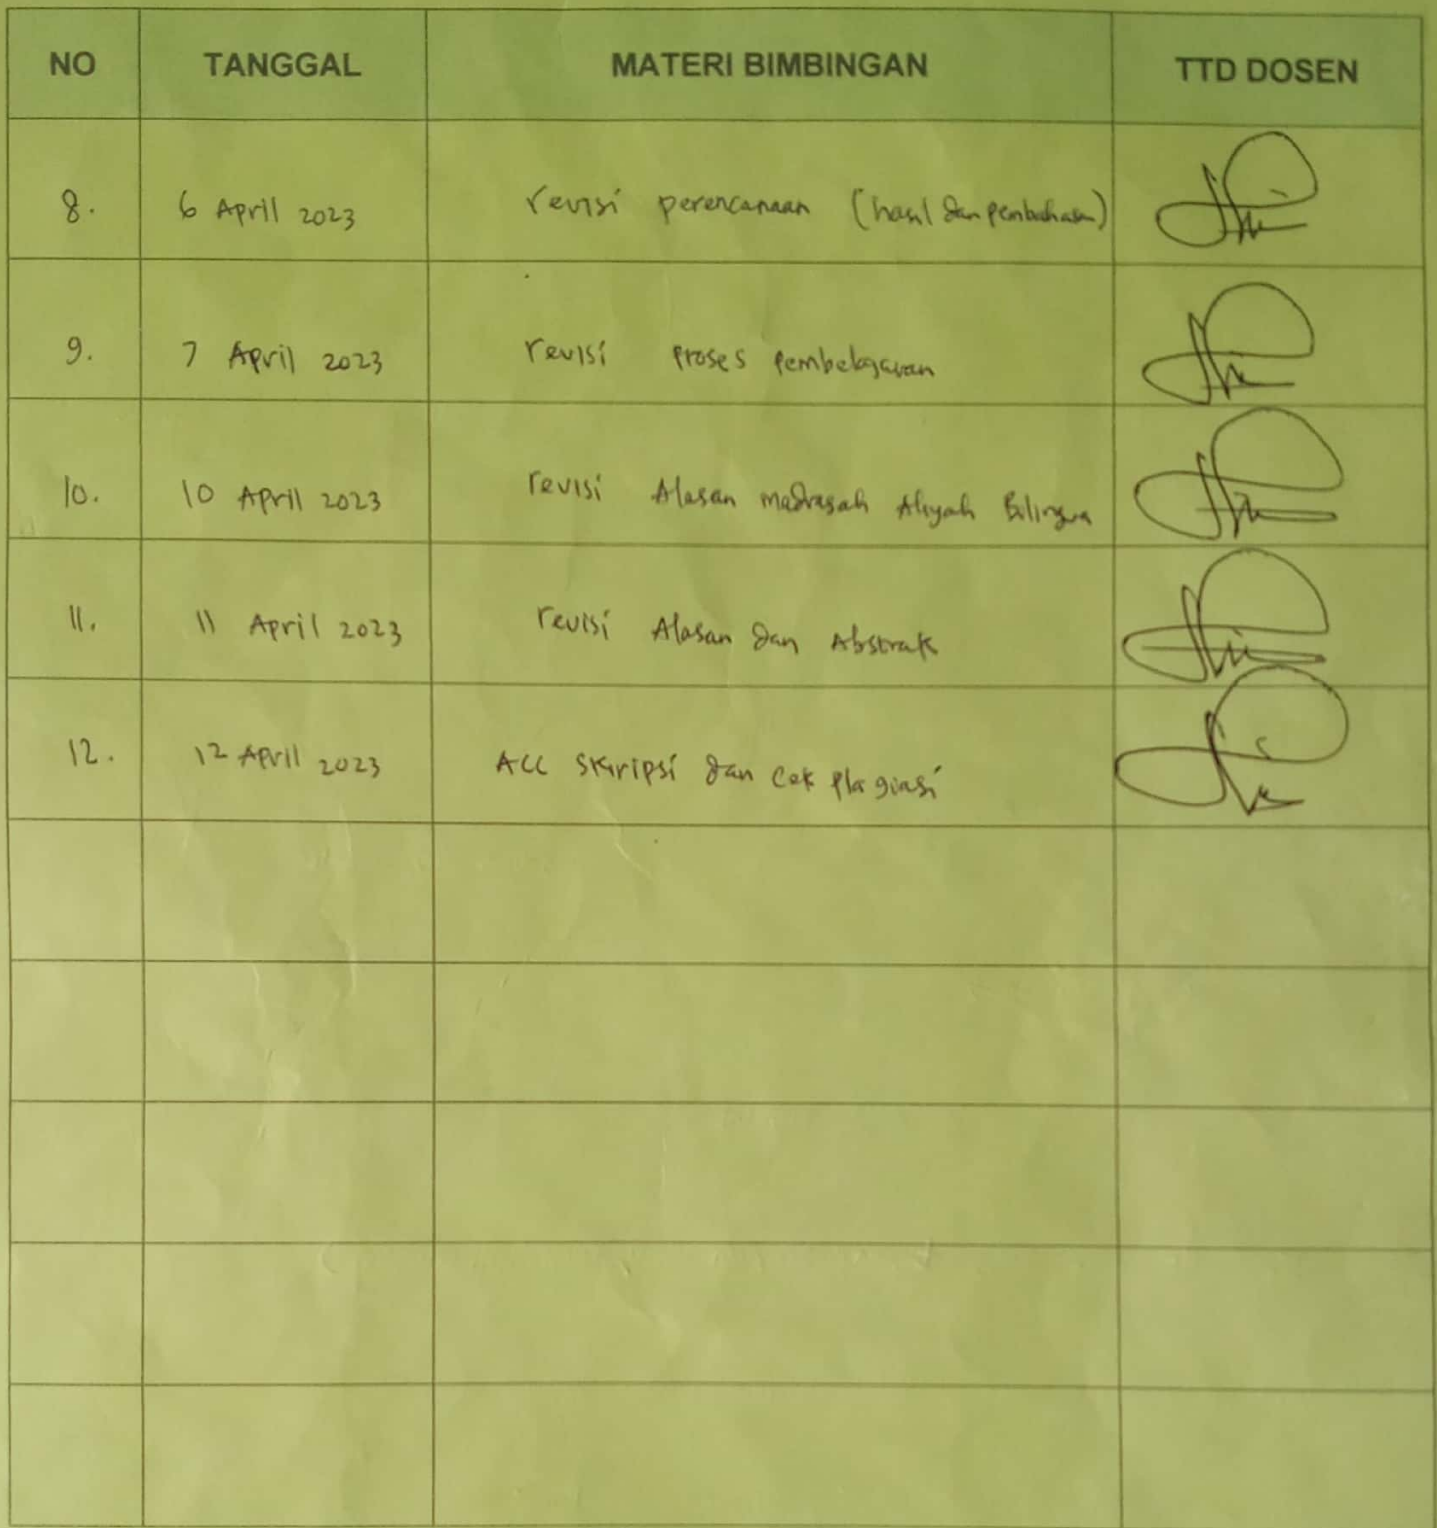 NO TANGGAL MATERI BIMBINGAN TTD DOSEN
8. 6 April 2023 revisi perencanaan (hasil dan pembahasan)
9. 7 April 2023 revisi proses pembelajaran
10. 10 April 2023 revisi Alasan madrasah Aliyah Bilingua
11. 11 April 2023 revisi Alasan dan Abstrak
12. 12 April 2023 ACC skripsi dan cek plagiasi